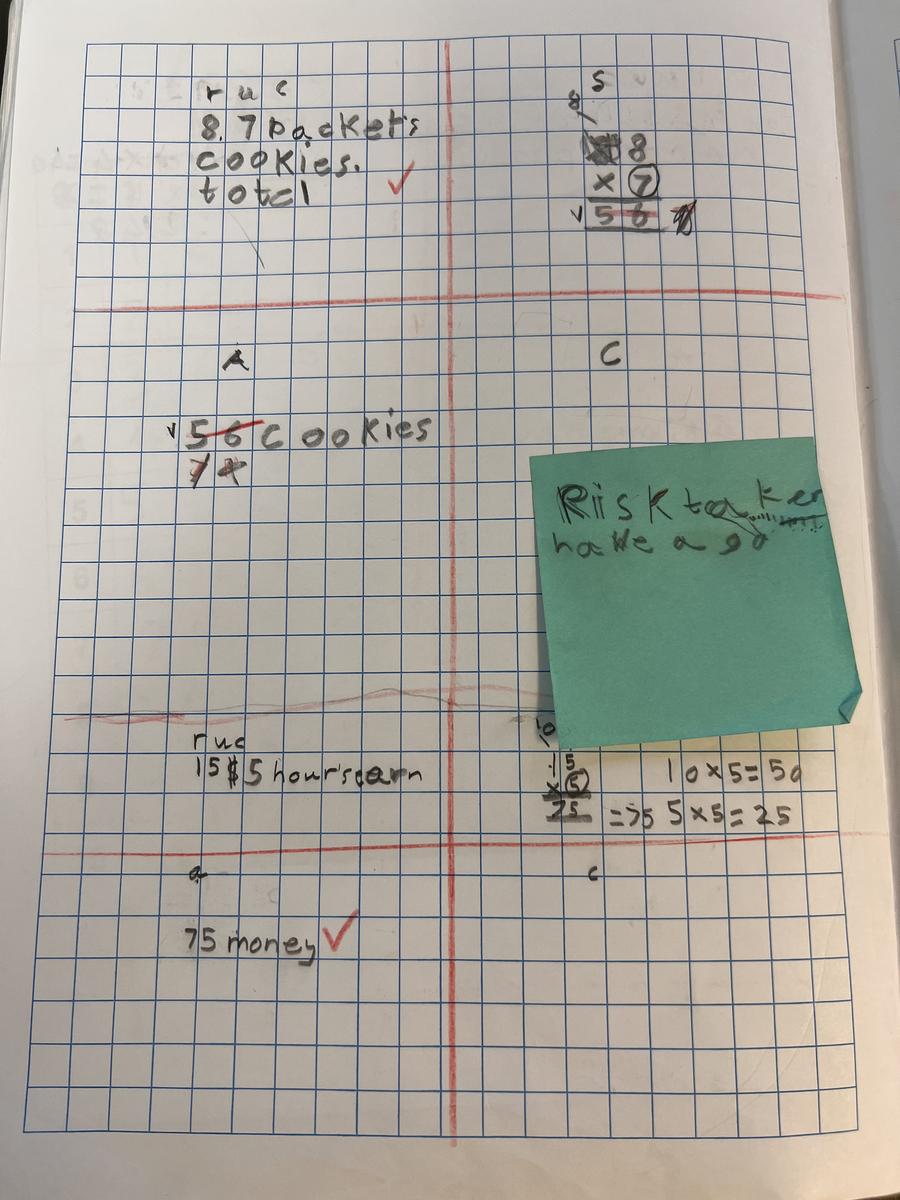 r u c
8. 7 packet's
cookies.
total
S
8
8
× 7
56
A
56 cookies
C
Risktaker
have a go
ruc
15$ 5 hours earn
10
15
× 5
75
10×5=50
=75 5×5=25
a
75 money
c